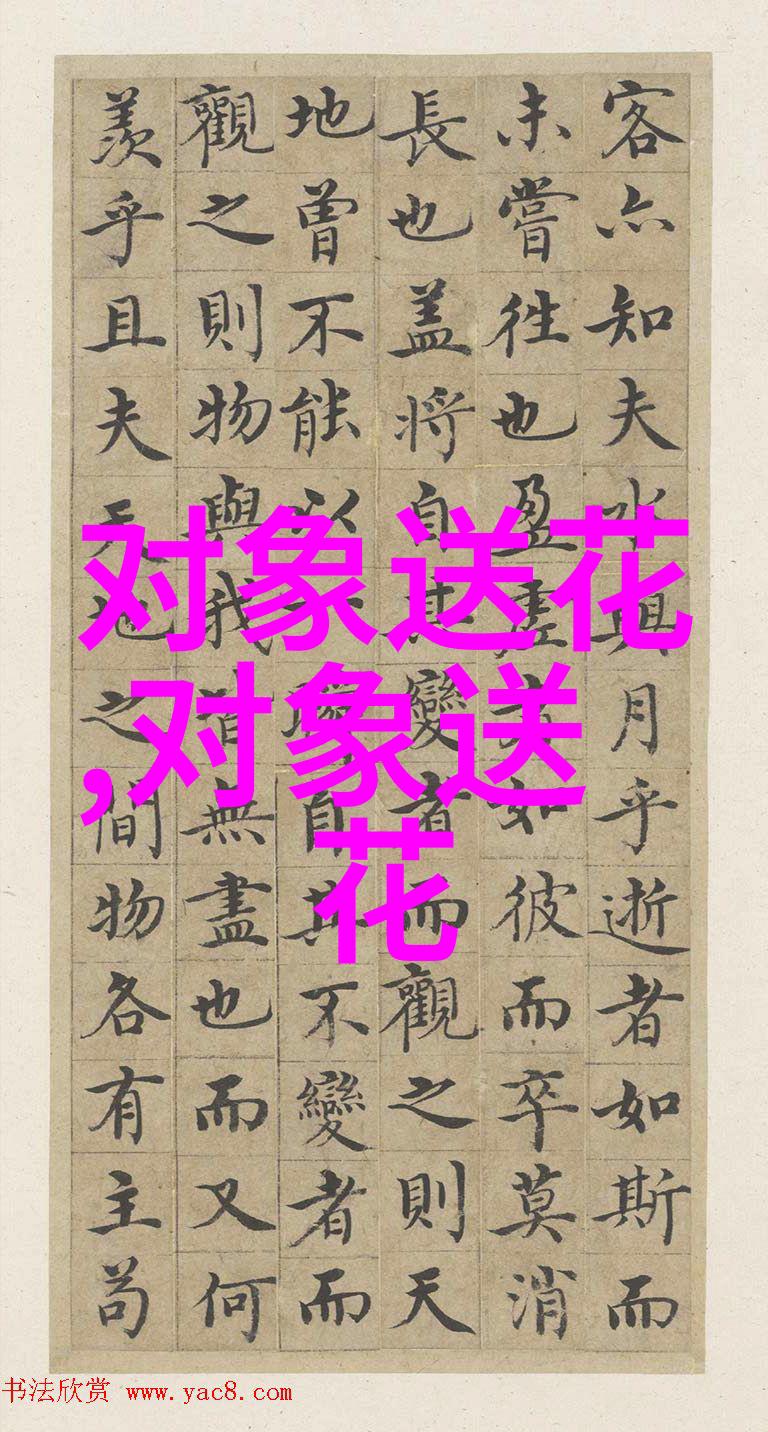 客亦知夫水與月乎逝者如斯而
未嘗往也盈虛者如彼而卒莫消
長也盖将自其變者而觀之則天
地曾不能以一瞬自其不變者而
觀之則物與我皆無盡也而又何
羨乎且夫天地之間物各有主苟
对象送花
,对象送
花
书法欣赏 www.yac8.com